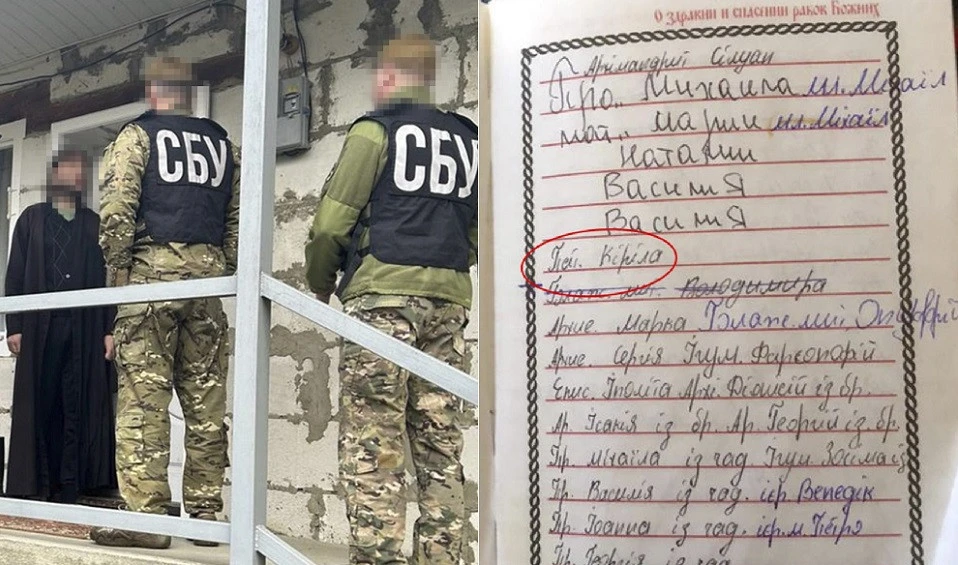 СБУ
СБУ
О здравии и спасении рабов Божиих
Архімандрит Сілуан
Про.. Михаила мл. Міхаіл
мат.. Марии мл. Міхаіл
Наталии
Василия
Василия
Пат. Кіріла
Блаж. мит. Володимира
Архие. Марка Блаж. мит. Онуфрій
Архие. Сергія Ігум.
Епис. Іполіта Архі. із бр.
Ар. Ісакія із бр. Ар. Георгій із бр.
Пр. Міхаіла із чад. Ігум
Пр. Василія із чад. ієр. Венедік
Пр. Іоанна із чад. ієр. м. Пётро
Пр. Георгія із чад.